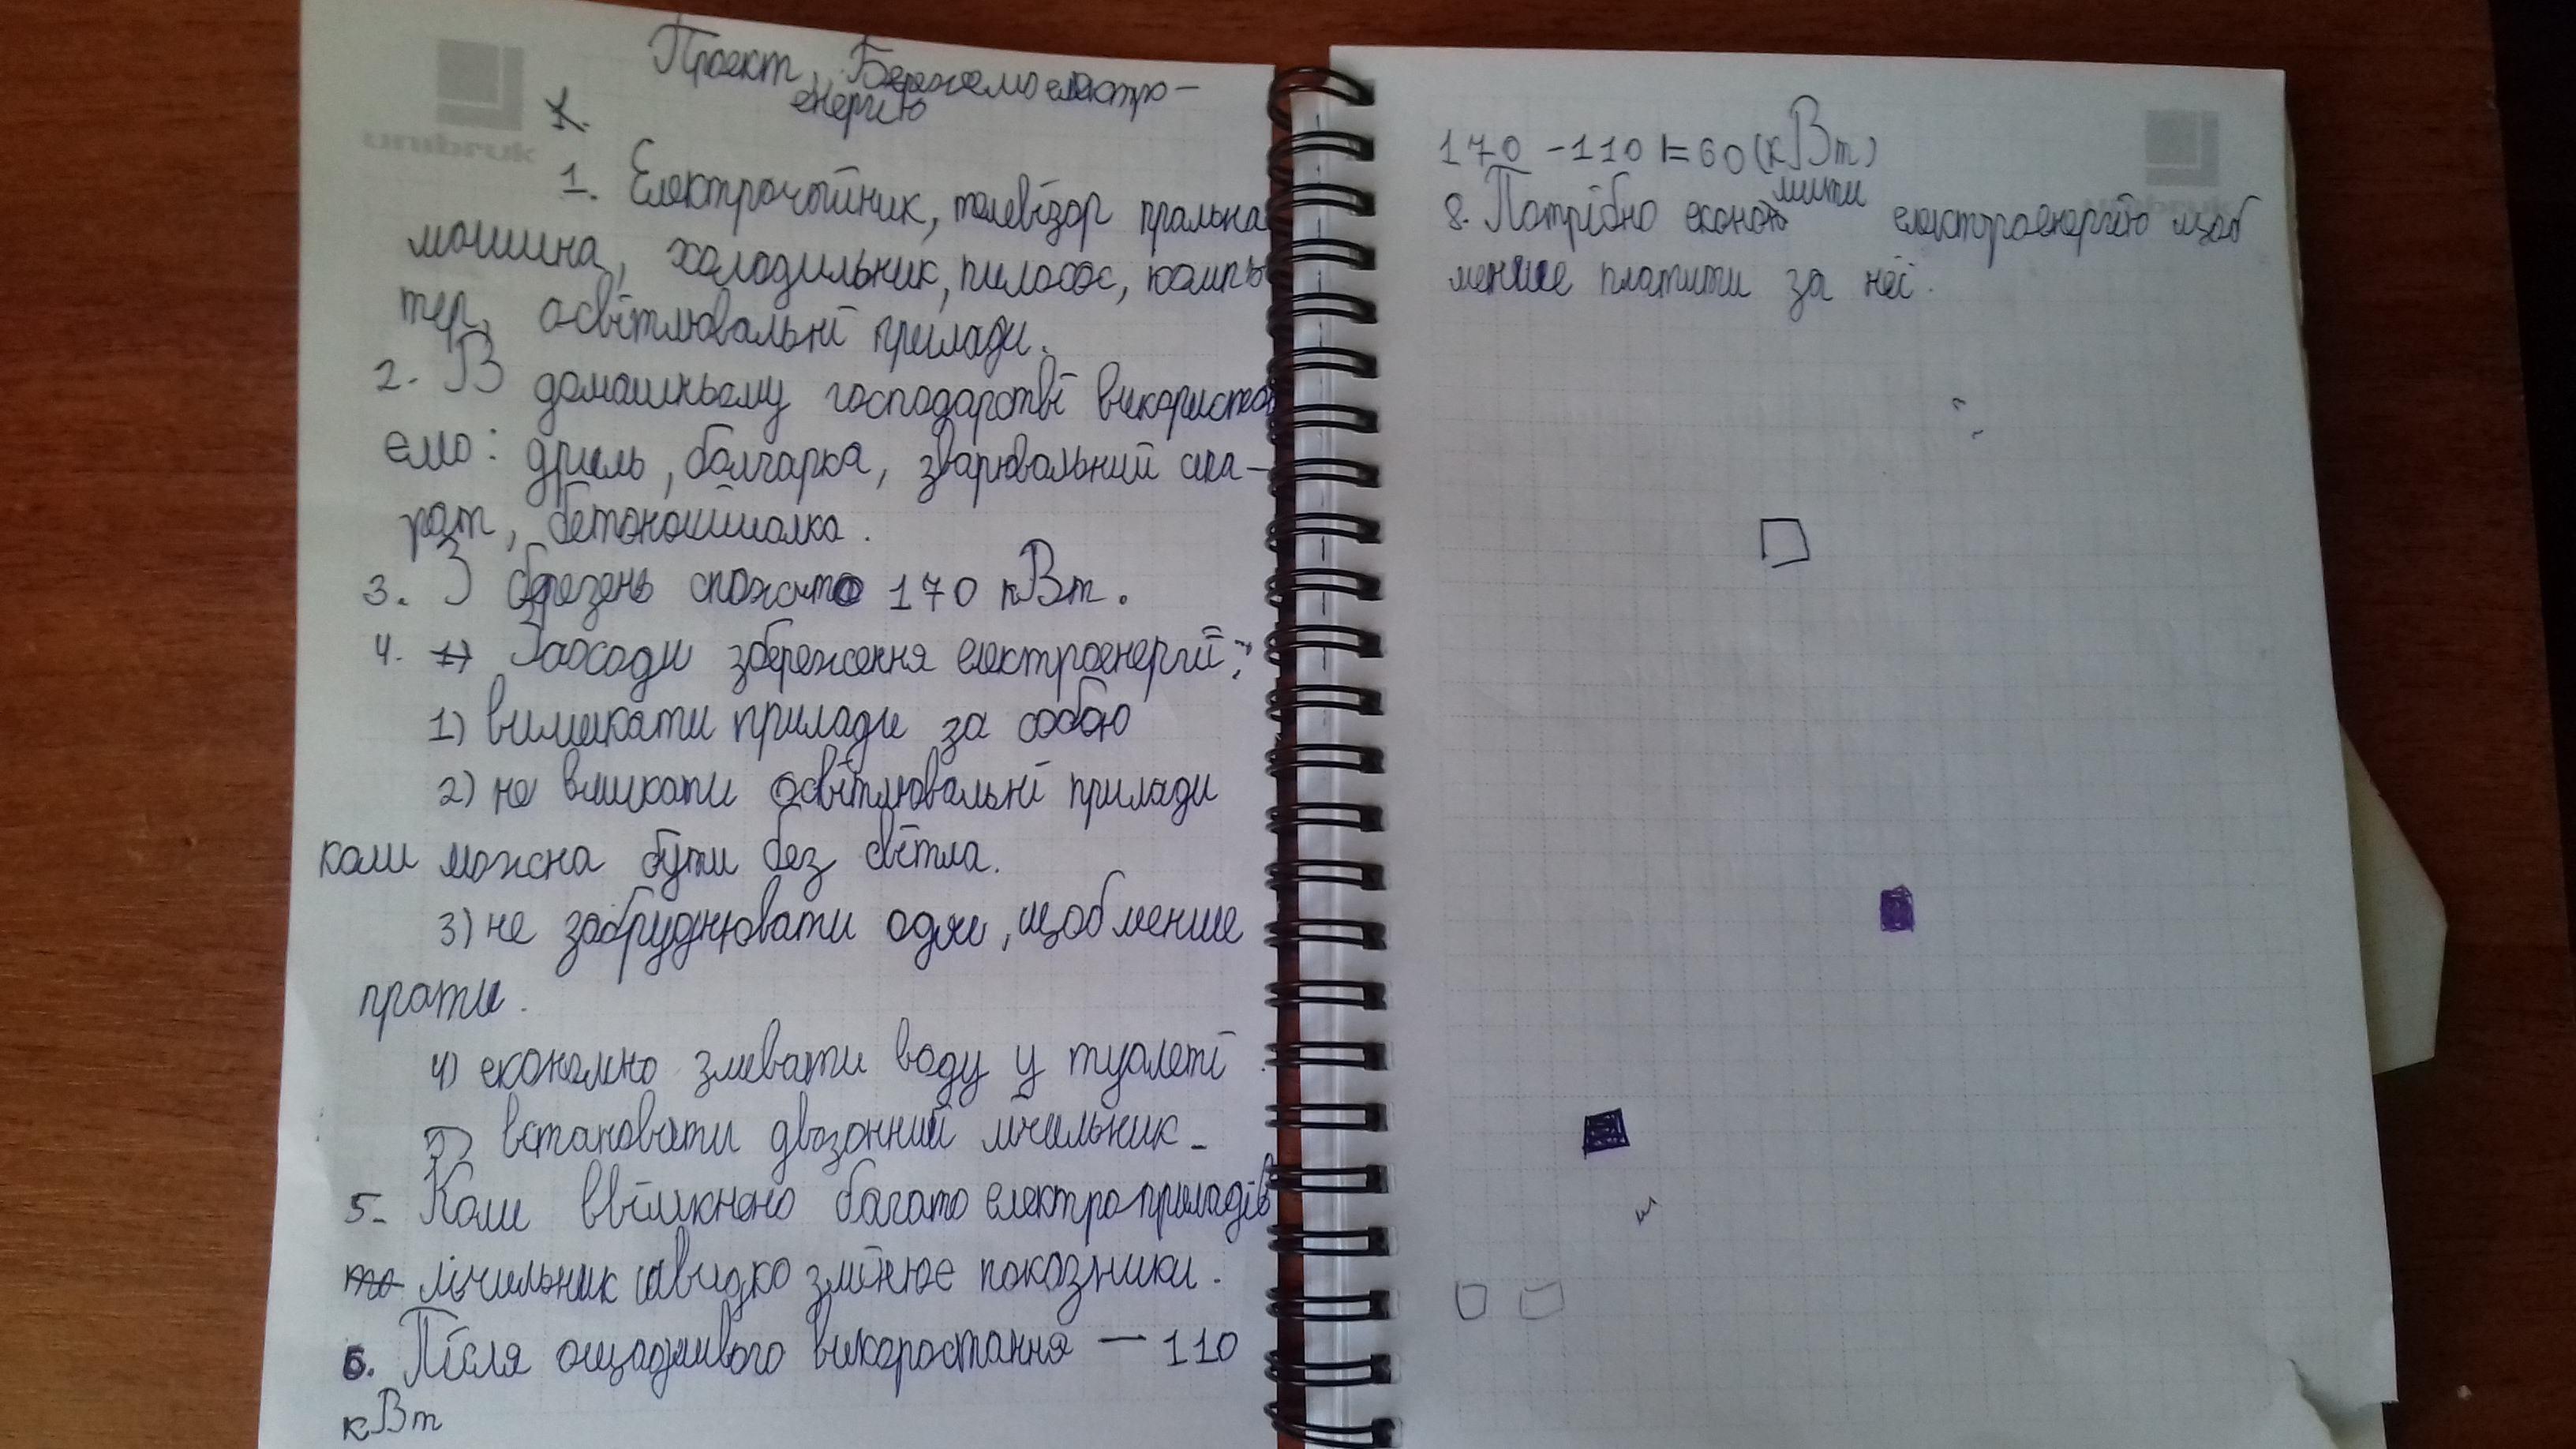 unibruk
Проект „Бережемо електро-
енергію
1. Електрочайник, телевізор пральна
машина, холодильник, пилосос, компь
тер, освітлювальні прилади.
2. В домашньому господарстві використов
ємо: дриль, болгарка, зварювальний апа-
рат, бетономішалка.
3. З березень спожито 170 кВт.
4. Заходи збереження електроенергії:
1) вимикати прилади за собою
2) не вмикати освітлювальні прилади
коли можна бути без світла.
3) не забруднювати одяг, щоб менше
прати.
4) економно змивати воду у туалеті
5) встановити двозонний лічильник.
5. Коли ввімкнено багато електроприладів
то лічильник швидко змінює показники.
6. Після ощадливого використання — 110
кВт
170 - 110 = 60 (кВт)
8. Потрібно економити електроенергію щоб
менше платити за неї.